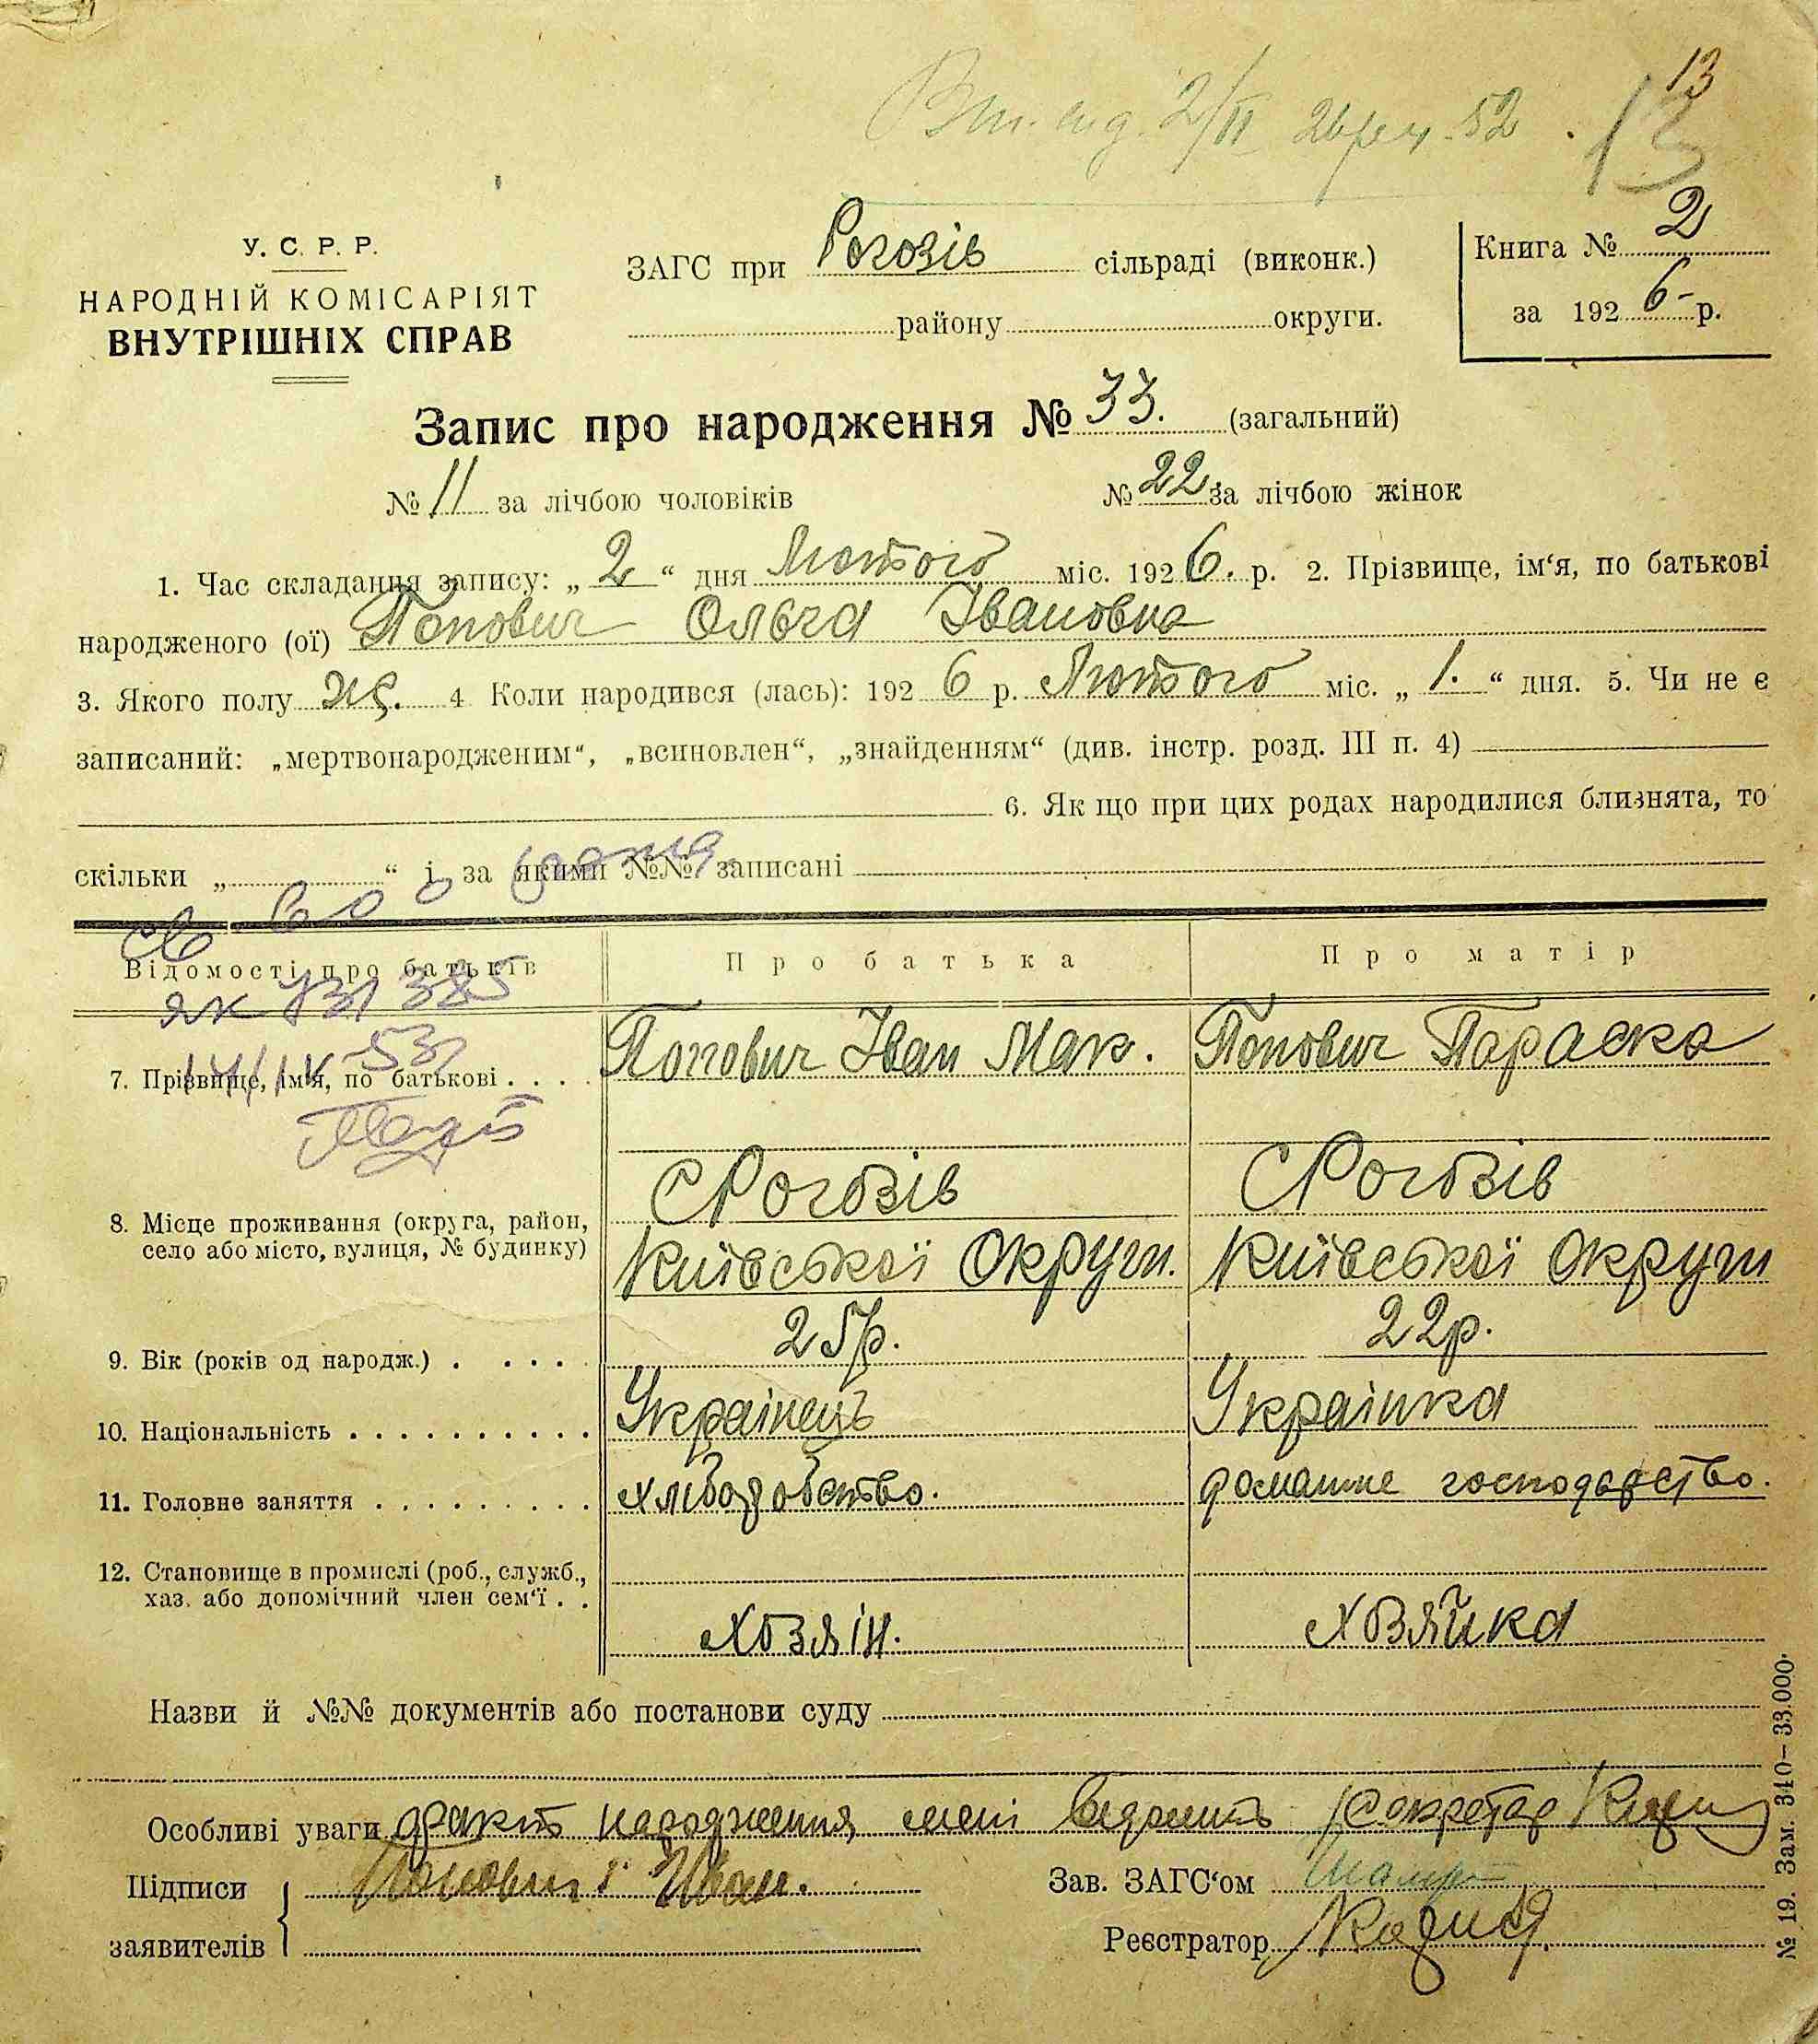 13
13
У. С. Р. Р.
НАРОДНІЙ КОМІСАРІЯТ
ВНУТРІШНІХ СПРАВ
ЗАГС при Рогозів сільраді (виконк.)
району округи.
Книга № 2
за 1926 р.
Запис про народження № 33. (загальний)
№ 11 за лічбою чоловіків № 22 за лічбою жінок
1. Час складання запису: „2“ дня Лютого міс. 1926. р. 2. Прізвище, ім‘я, по батькові
народженого (ої) Попович Ольга Івановна
3. Якого полу ж. 4 Коли народився (лась): 1926 р. Лютого міс. „1.“ дня. 5. Чи не є
записаний: „мертвонародженим“, „всиновлен“, „знайденням“ (див. інстр. розд. III п. 4)
6. Як що при цих родах народилися близнята, то
скільки „ “ і за якими №№ записані
Відомості про батьків Про батька Про матір
7. Прізвище, ім‘я, по батькові . . . . Попович Іван Мак. Попович Параска
8. Місце проживання (округа, район, село або місто, вулиця, № будинку) С Рогозів Київської Округи. С Рогозів Київської Округи
9. Вік (років од народж.) . . . . . 25р. 22р.
10. Національність . . . . . . . . . . Украінець Украінка
11. Головне заняття . . . . . . . . . хліборобство. домашне господарство.
12. Становище в промислі (роб., служб., хаз. або допомічний член сем‘ї . . Хозяін. Хозяйка
Назви й №№ документів або постанови суду
Особливі уваги факт народження мені Секретар
Підписи Попович Іван. Зав. ЗАГС‘ом
заявителів Реєстратор
№ 19. Зам. 340–33.000.